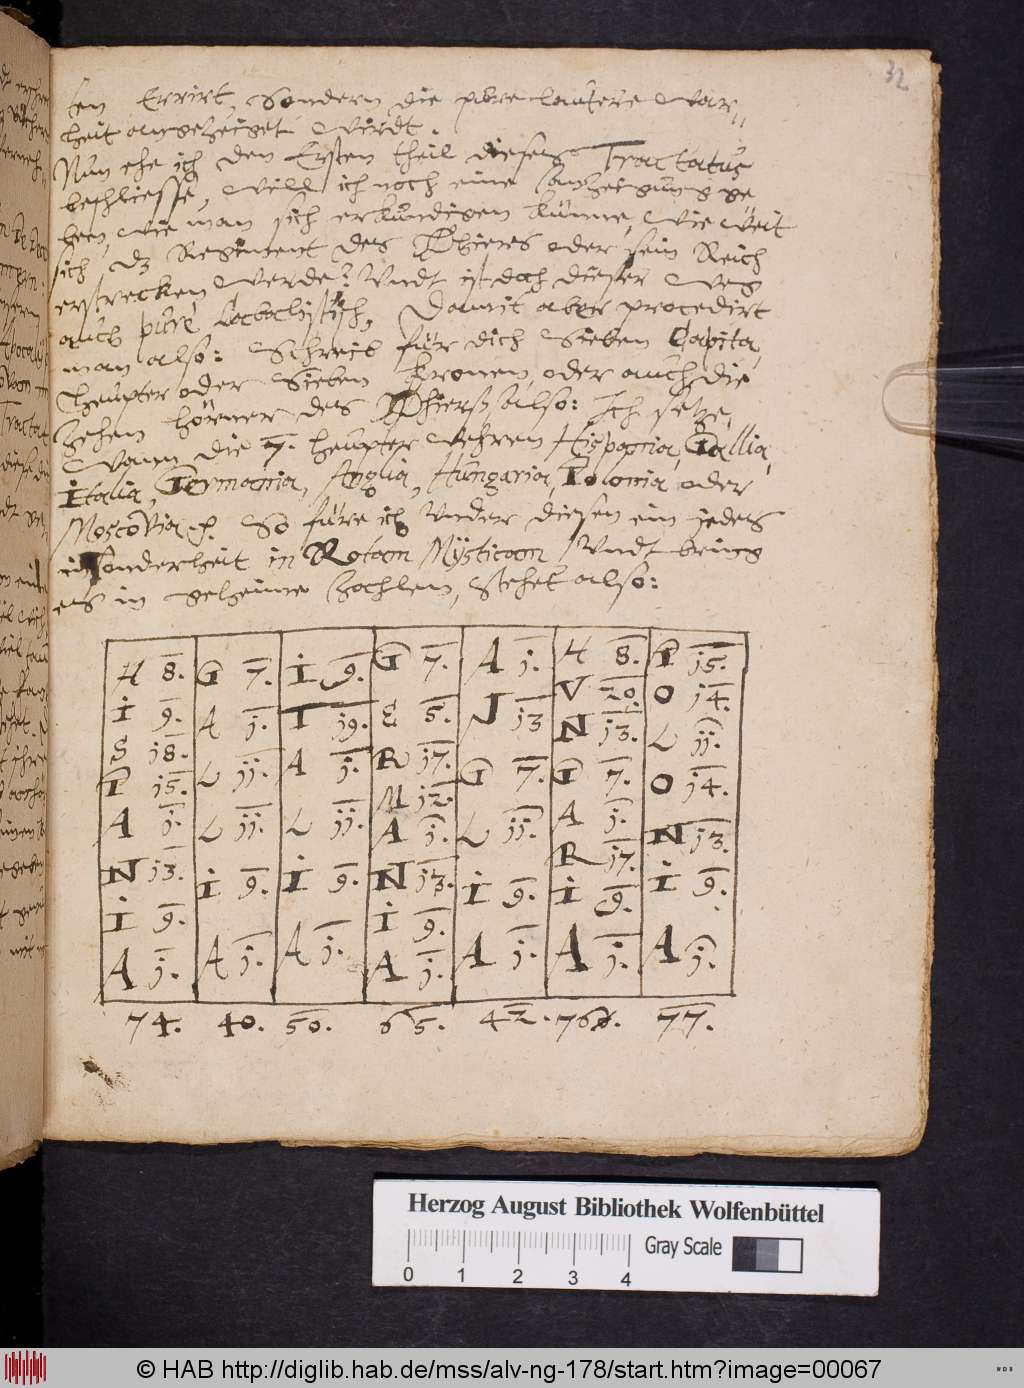 32
ten Errirt, Sondern die pure lautere War-
heit angezeiget wirdt.
Nun ehe ich den Ersten theil dieses Tractatus
beschliesse, will ich noch eine Anzeigung ge
ben, wie man sich erkundigen künne, wie weit
sich dz Regiment des Thieres oder sein Reich
erstrecken werde? Undt ist doch dieser Weg
auch pure Cabalistisch, Damit aber procedirt
man also: Schreib für dich Sieben Capita,
Heupter oder Sieben Kronen, oder auch die
Zehen hörner des Thierß also: Ich setze,
Wann die 7. heupter wehren Hispania, Gallia,
Italia, Germania, Anglia, Hungaria, Polonia oder
Moscovia. So füre ich Under diesen ein jedes
in sonderheit in Rotam Mysticam, Undt bring
es in geheime Zahlen, stehet also:
H 8. G 7. I 9. G 7. A 1. H 8. P 15.
I 9. A 1. T 19. E 5. N 13 V 20. O 14.
S 18. L 11. A 1. R 17. G 7. N 13. L 11.
P 15. L 11. L 11. M 12. L 11. G 7. O 14.
A 1. I 9. I 9. A 1. I 9. A 1. N 13.
N 13. A 1. A 1. N 13. A 1. R 17. I 9.
I 9. I 9. I 9. A 1.
A 1. A 1. A 1.
74. 40. 50. 65. 42. 76. 77.
Herzog August Bibliothek Wolfenbüttel
Gray Scale
0 1 2 3 4
© HAB http://diglib.hab.de/mss/alv-ng-178/start.htm?image=00067